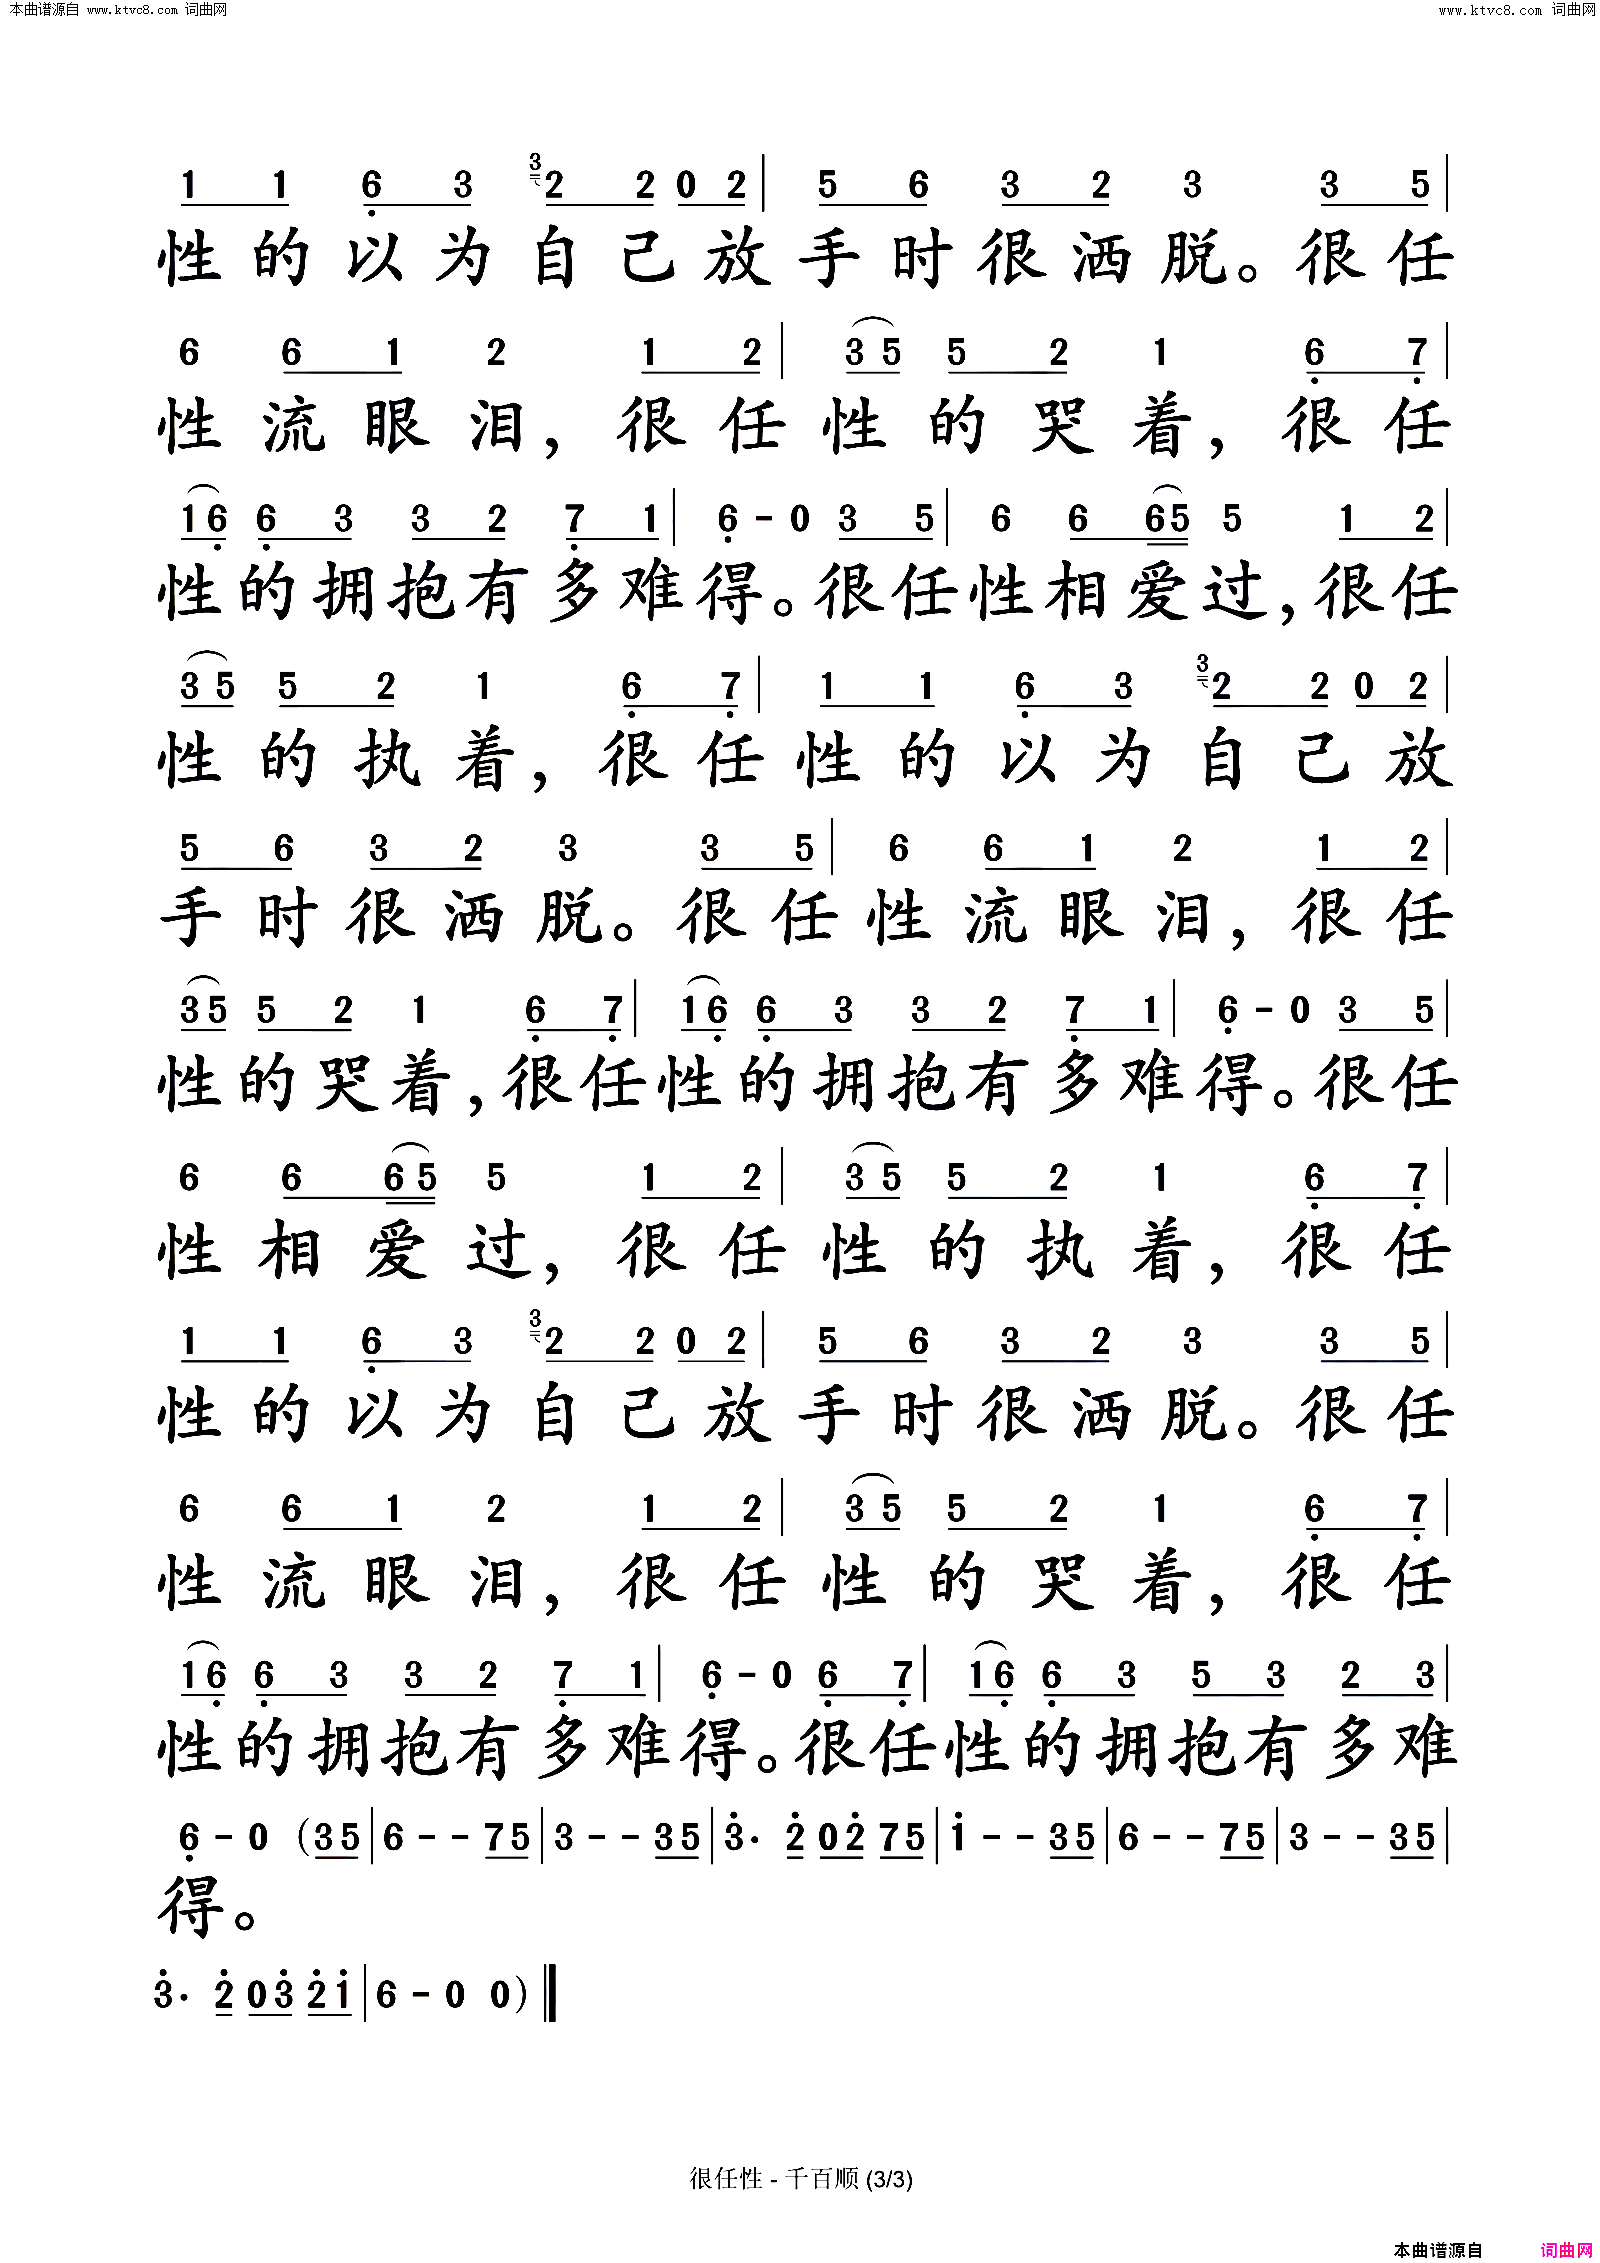 本曲谱源自 www.ktvc8.com 词曲网
www.ktvc8.com 词曲网
1 1 6 3 3 2 2 0 2 | 5 6 3 2 3 3 5 |
性的以为自己放手时很洒脱。很任
6 6 1 2 1 2 | 3 5 5 2 1 6 7 |
性流眼泪，很任性的哭着，很任
1 6 6 3 3 2 7 1 | 6 - 0 3 5 | 6 6 6 5 5 1 2 |
性的拥抱有多难得。很任性相爱过，很任
3 5 5 2 1 6 7 | 1 1 6 3 3 2 2 0 2 |
性的执着，很任性的以为自己放
5 6 3 2 3 3 5 | 6 6 1 2 1 2 |
手时很洒脱。很任性流眼泪，很任
3 5 5 2 1 6 7 | 1 6 6 3 3 2 7 1 | 6 - 0 3 5 |
性的哭着，很任性的拥抱有多难得。很任
6 6 6 5 5 1 2 | 3 5 5 2 1 6 7 |
性相爱过，很任性的执着，很任
1 1 6 3 3 2 2 0 2 | 5 6 3 2 3 3 5 |
性的以为自己放手时很洒脱。很任
6 6 1 2 1 2 | 3 5 5 2 1 6 7 |
性流眼泪，很任性的哭着，很任
1 6 6 3 3 2 7 1 | 6 - 0 6 7 | 1 6 6 3 5 3 2 3 |
性的拥抱有多难得。很任性的拥抱有多难
6 - 0 (3 5 | 6 - - 7 5 | 3 - - 3 5 | 3· 2 0 2 7 5 | 1 - - 3 5 | 6 - - 7 5 | 3 - - 3 5 |
得。
3· 2 0 3 2 1 | 6 - 0 0) ‖
很任性 - 千百顺 (3/3)
本曲谱源自 词曲网